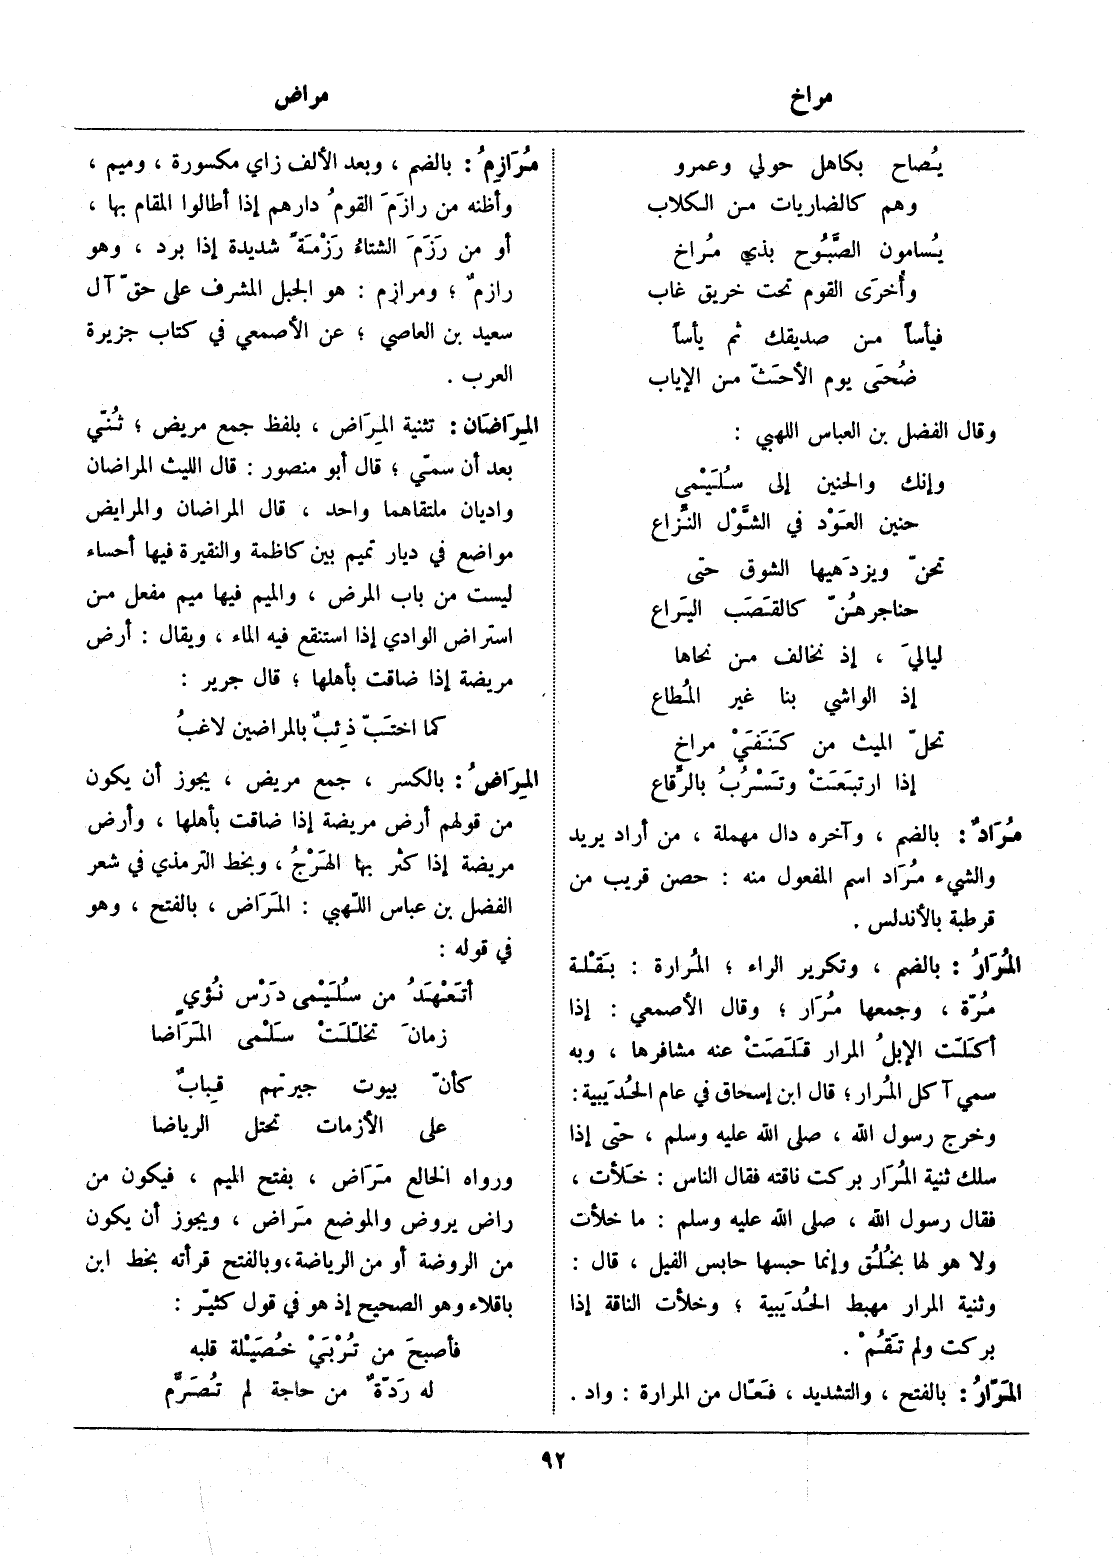 مراخ
مراض
يُصاح بكاهل حولي وعمرو
وهم كالضاريات من الكلاب
يُسامون الصَّبُوح بذي مُراخ
وأُخرَى القوم تحت خريق غاب
فيأساً من صديقك ثم يأساً
ضُحَى يوم الأحَثّ من الإياب
وقال الفضل بن العباس اللهبي :
وإنك والحنين إلى سُلَيْمى
حنين العَوْد في الشَّوْل النَّزاع
تحنّ ويزدَهيها الشوق حتى
حناجرهُنّ كالقَصَب اليَراع
لياليَ ، إذ نخالف من نحاها
إذ الواشي بنا غير المُطاع
تحلّ الميث من كَنَفَيْ مراخ
إذا ارتبَعَتْ وتَسْرُبُ بالرِّقاع
مُرَادٌ : بالضم ، وآخره دال مهملة ، من أراد يريد
والشيء مُرَاد اسم المفعول منه : حصن قريب من
قرطبة بالأندلس .
المُرَارُ : بالضم ، وتكرير الراء ؛ المُرارة : بَقْلة
مُرّة ، وجمعها مُرَار ؛ وقال الأصمعي : إذا
أكلَت الإبلُ المرار قَلَصَتْ عنه مشافرها ، وبه
سمي آكل المُرار ؛ قال ابن إسحاق في عام الحُدَيبية :
وخرج رسول الله ، صلى الله عليه وسلم ، حتى إذا
سلك ثنية المُرَار بركت ناقته فقال الناس : خلأت ،
فقال رسول الله ، صلى الله عليه وسلم : ما خلأت
ولا هو لها بخُلُق وإنما حبسها حابس الفيل ، قال :
وثنية المرار مهبط الحُدَيبية ؛ وخلأت الناقة إذا
بركت ولم تَقُمْ .
المَرّارُ : بالفتح ، والتشديد ، فَعّال من المرارة : واد .
مُرَازِمُ : بالضم ، وبعد الألف زاي مكسورة ، وميم ،
وأظنه من رازَمَ القومُ دارهم إذا أطالوا المقام بها ،
أو من رَزَمَ الشتاءُ رَزْمَةً شديدة إذا برد ، وهو
رازمٌ ؛ ومرازم : هو الجبل المشرف على حقّ آل
سعيد بن العاصي ؛ عن الأصمعي في كتاب جزيرة
العرب .
المِرَاضَان : تثنية المِرَاض ، بلفظ جمع مريض ؛ ثُنّي
بعد أن سمّي ؛ قال أبو منصور : قال الليث المراضان
واديان ملتقاهما واحد ، قال المراضان والمرايض
مواضع في ديار تميم بين كاظمة والنقيرة فيها أحساء
ليست من باب المرض ، والميم فيها ميم مفعل من
استراض الوادي إذا استنقع فيه الماء ، ويقال : أرض
مريضة إذا ضاقت بأهلها ؛ قال جرير :
كما اختَبّ ذِئبٌ بالمراضين لاغبُ
المِرَاضُ : بالكسر ، جمع مريض ، يجوز أن يكون
من قولهم أرض مريضة إذا ضاقت بأهلها ، وأرض
مريضة إذا كثر بها الهَرْجُ ، وبخط الترمذي في شعر
الفضل بن عباس اللّهبي : المَرَاض ، بالفتح ، وهو
في قوله :
أتَعْهَدُ من سُلَيْمى دَرْس نُؤيٍ
زمانَ تخلّلَتْ سلمى المَرَاضا
كأنّ بيوت جيرتهم قِبابٌ
على الأزمات تحتل الرياضا
ورواه الخالع مَرَاض ، بفتح الميم ، فيكون من
راض يروض والموضع مَراض ، ويجوز أن يكون
من الروضة أو من الرياضة ، وبالفتح قرأته بخط ابن
باقلاء وهو الصحيح إذ هو في قول كثيّر :
فأصبحَ من تُرْبَيْ خُصَيْلة قلبه
له رَدّةٌ من حاجة لم تُصَرَّم
٩٢